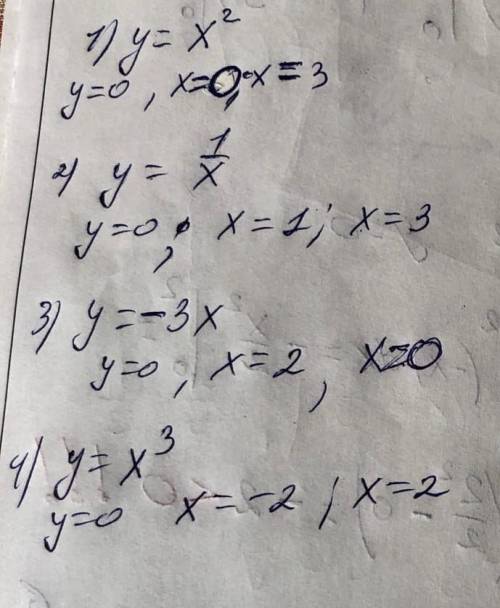 1) y = x²
y=0, x=0, x=3
2) y = 1/x
y=0, x=1; x=3
3) y=-3x
y=0, x=2, x=0
4) y=x³
y=0 x=-2; x=2